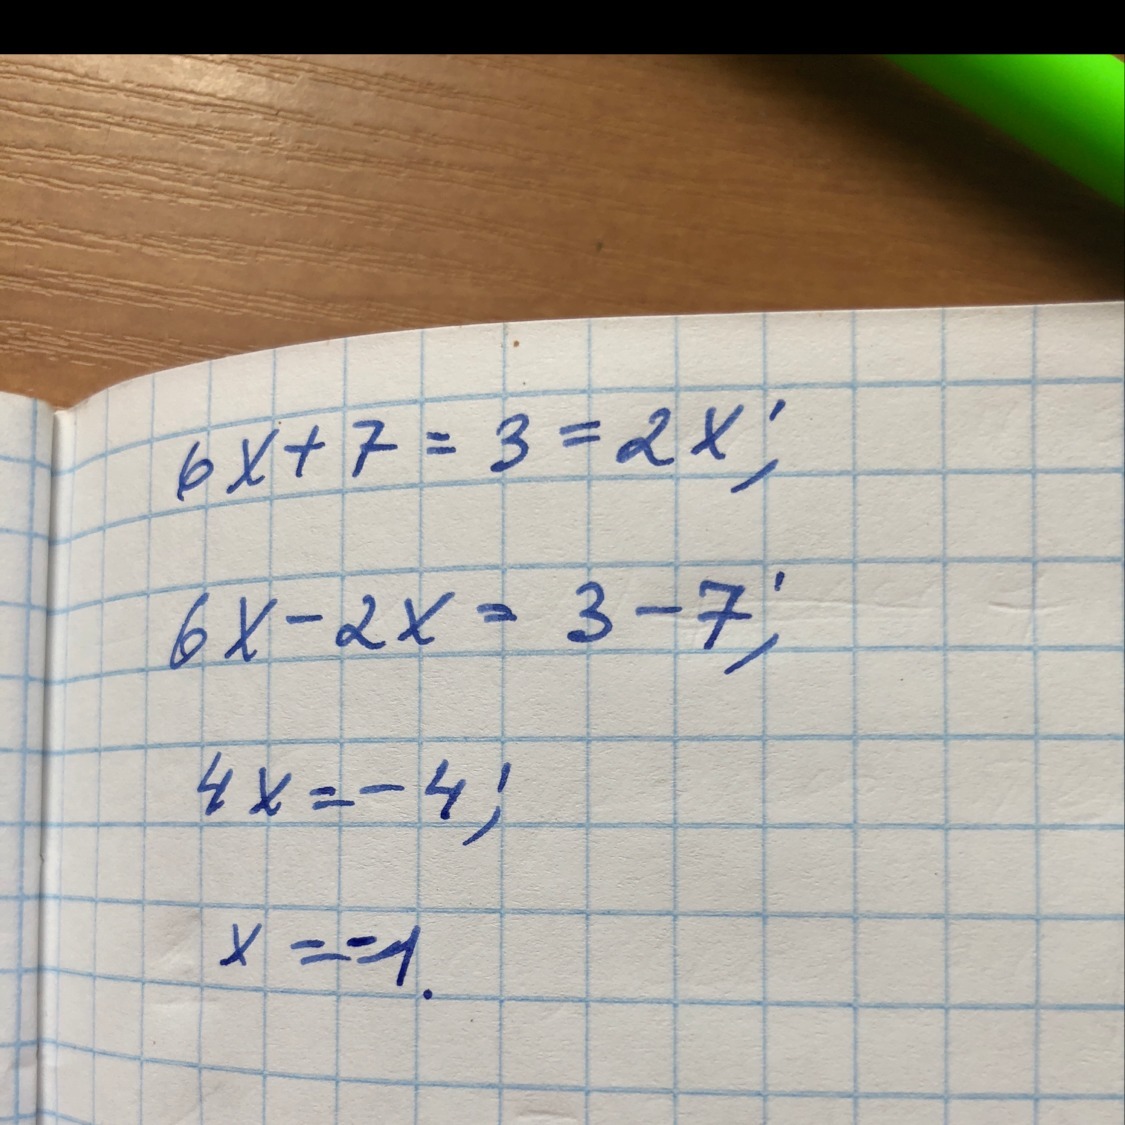 6x+7=3=2x;
6x-2x=3-7;
4x=-4;
x==-1.